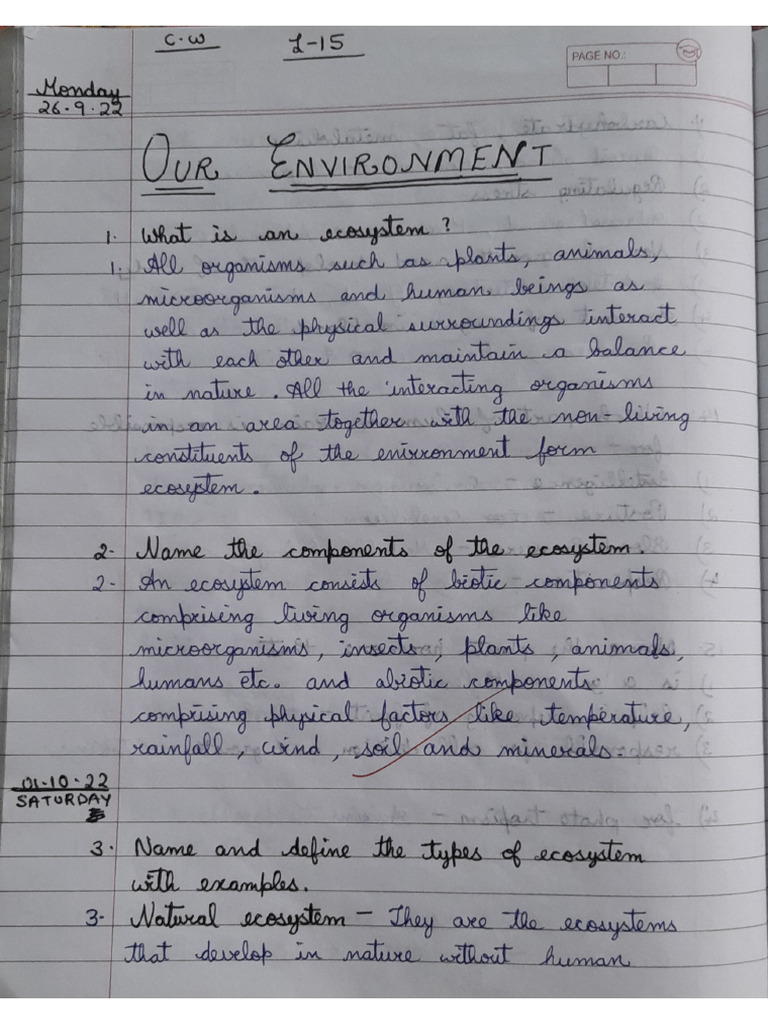 C.W L-15
PAGE NO.:
Monday
26.9.22
OUR ENVIRONMENT
1. What is an ecosystem?
1. All organisms such as plants, animals,
microorganisms and human beings as
well as the physical surroundings interact
with each other and maintain a balance
in nature. All the interacting organisms
in an area together with the non-living
constituents of the enirxonment form
ecosystem.
2. Name the components of the ecosystem.
2. An ecosystem consists of biotic components
comprising living organisms like
microorganisms, insects, plants, animals,
humans etc. and abiotic components
comprising physical factors like temperature,
rainfall, wind, soil and minerals.
01.10.22
SATURDAY
3. Name and define the types of ecosystem
with examples.
3. Natural ecosystem - They are the ecosystems
that develop in nature without human